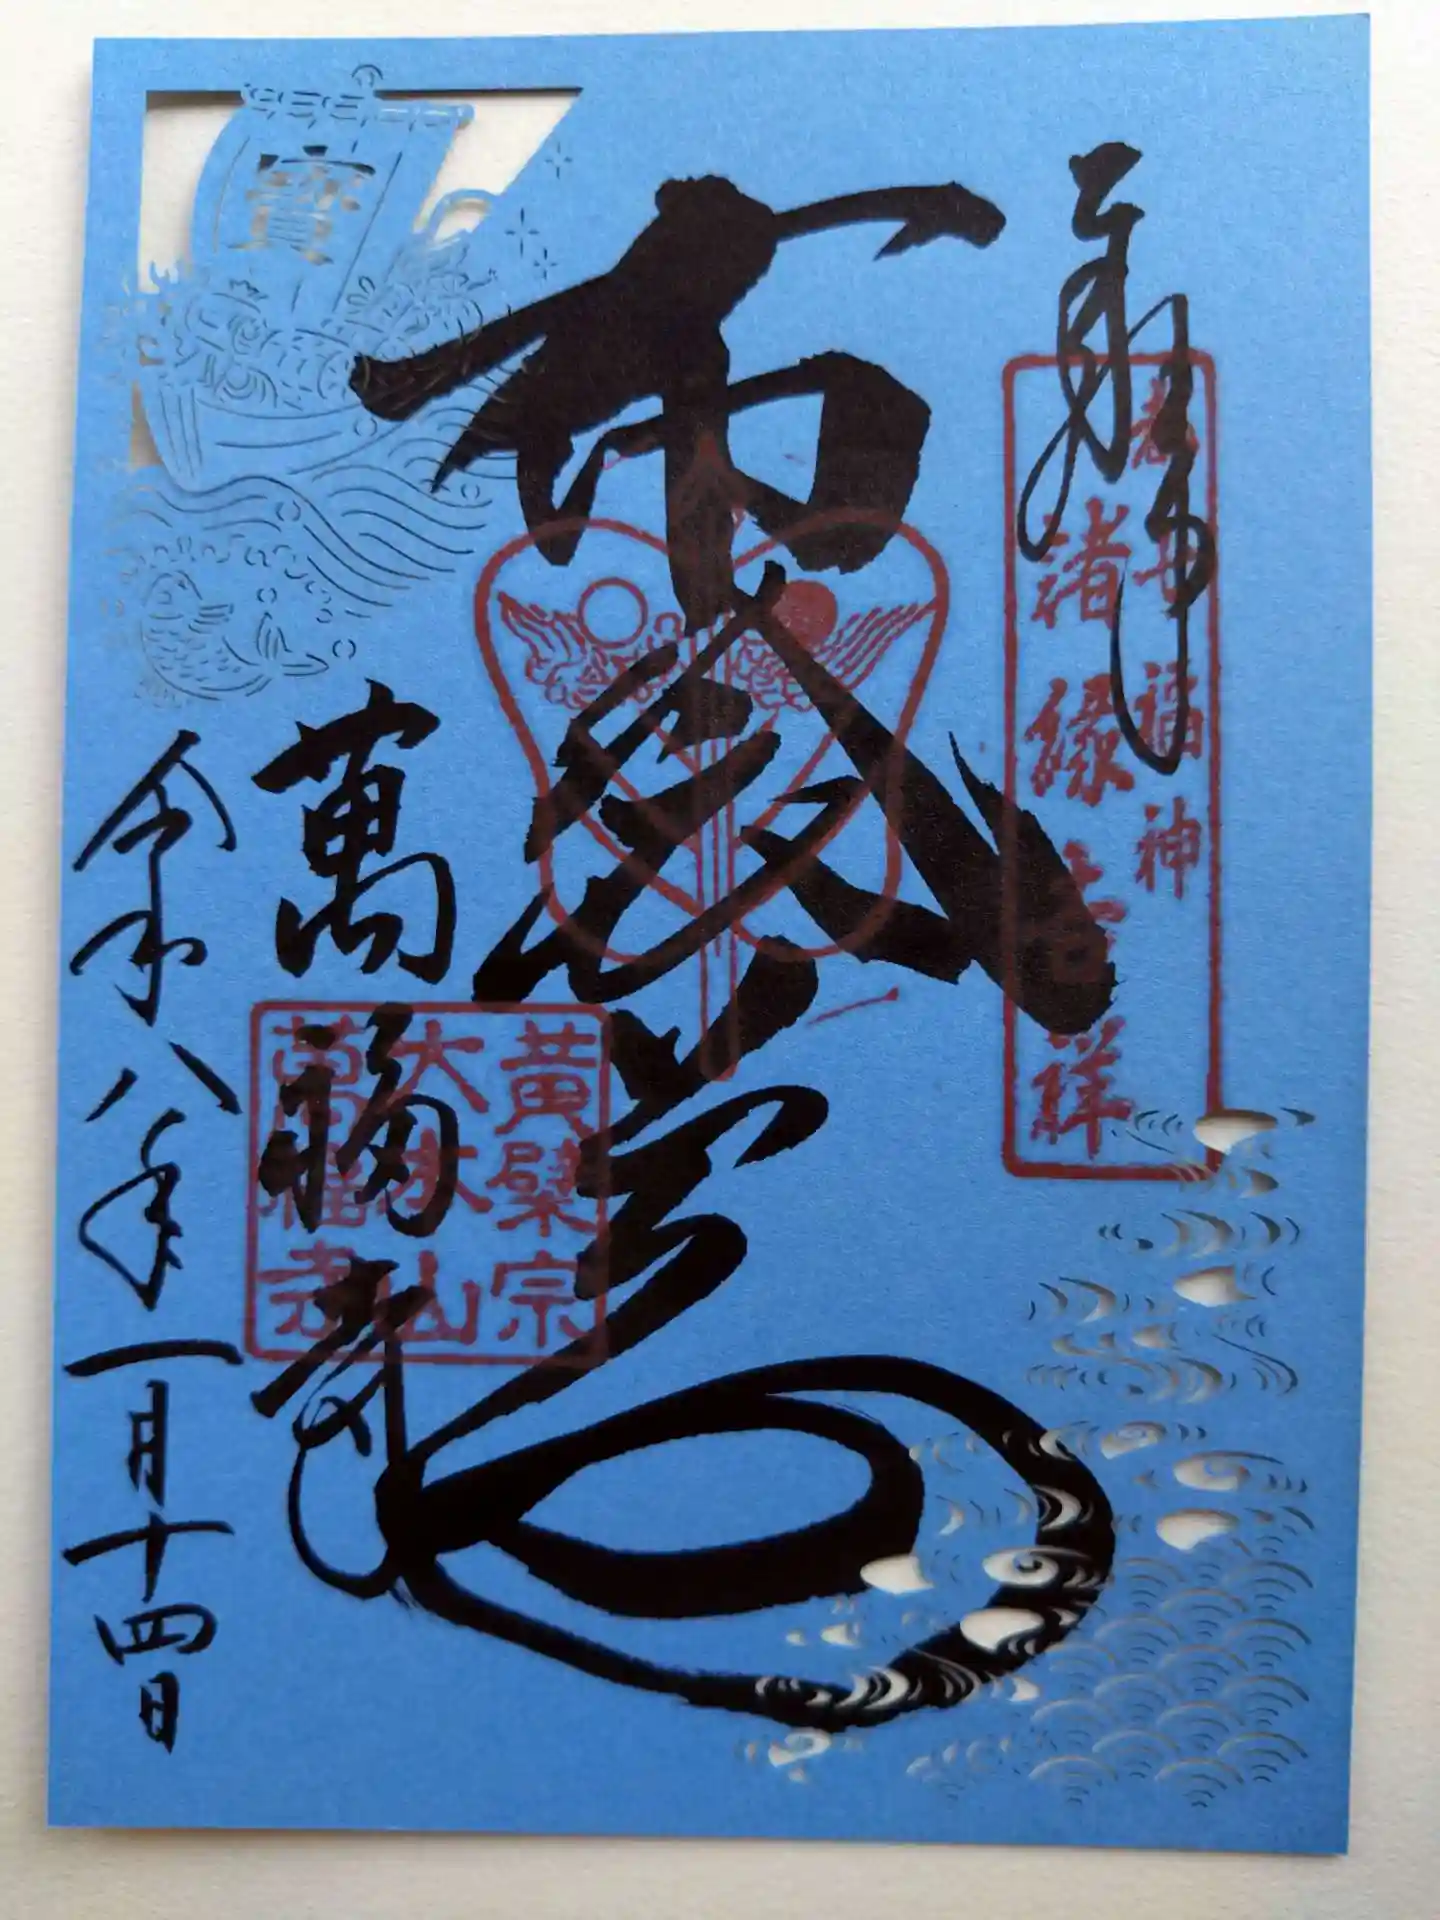 奉拝
都七福神
諸縁吉祥
布袋尊
寶
黄檗宗
大本山
萬福寺
萬福寺
令和八年一月十四日